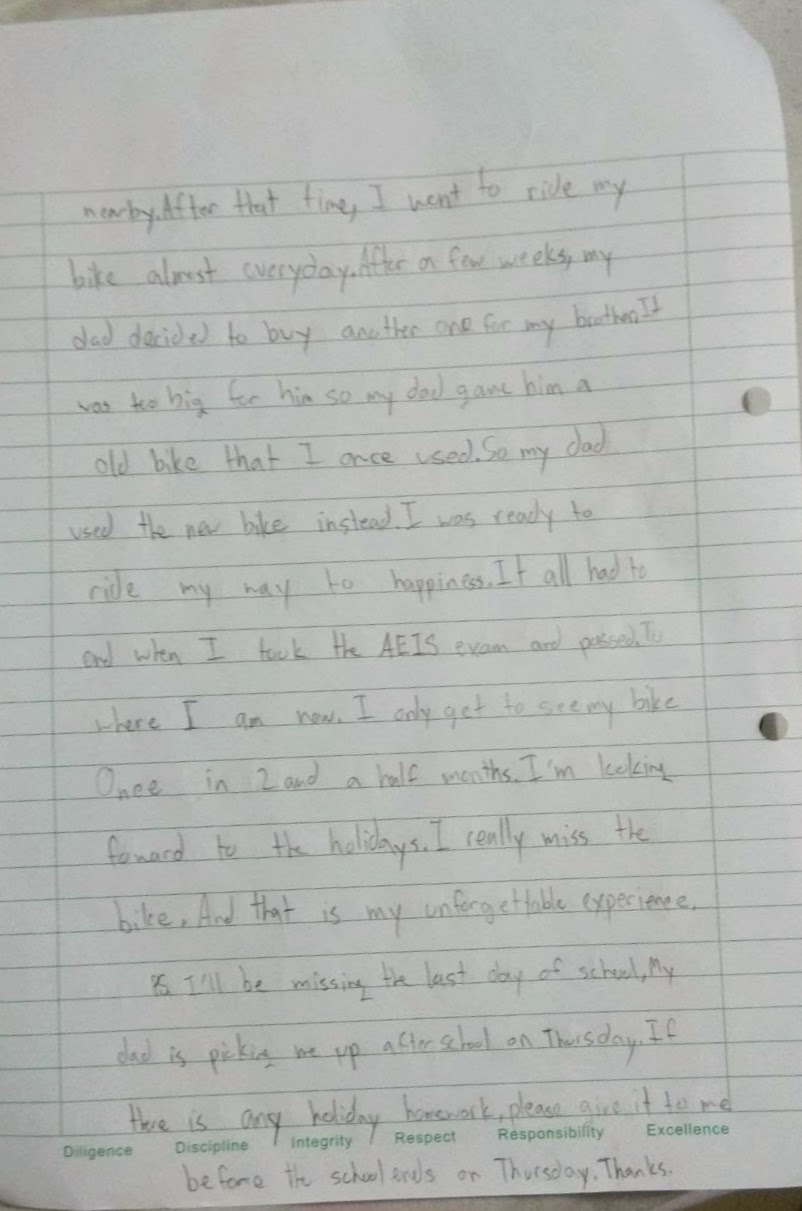 nearby.After that time, I went to ride my
bike almost everyday.After a few weeks, my
dad decided to buy another one for my brother.It
was too big for him so my dad gave him a
old bike that I once used.So my dad
used the new bike instead.I was ready to
ride my way to happiness.It all had to
end when I took the AEIS exam and passed.To
where I am now. I only get to see my bike
Once in 2 and a half months.I'm looking
foward to the holidays.I really miss the
bike.And that is my unforgettable experience.
PS I'll be missing the last day of school,My
dad is picking me up after school on Thursday.If
there is any holiday homework,please give it to me
Diligence Discipline Integrity Respect Responsibility Excellence
before the school ends on Thursday.Thanks.